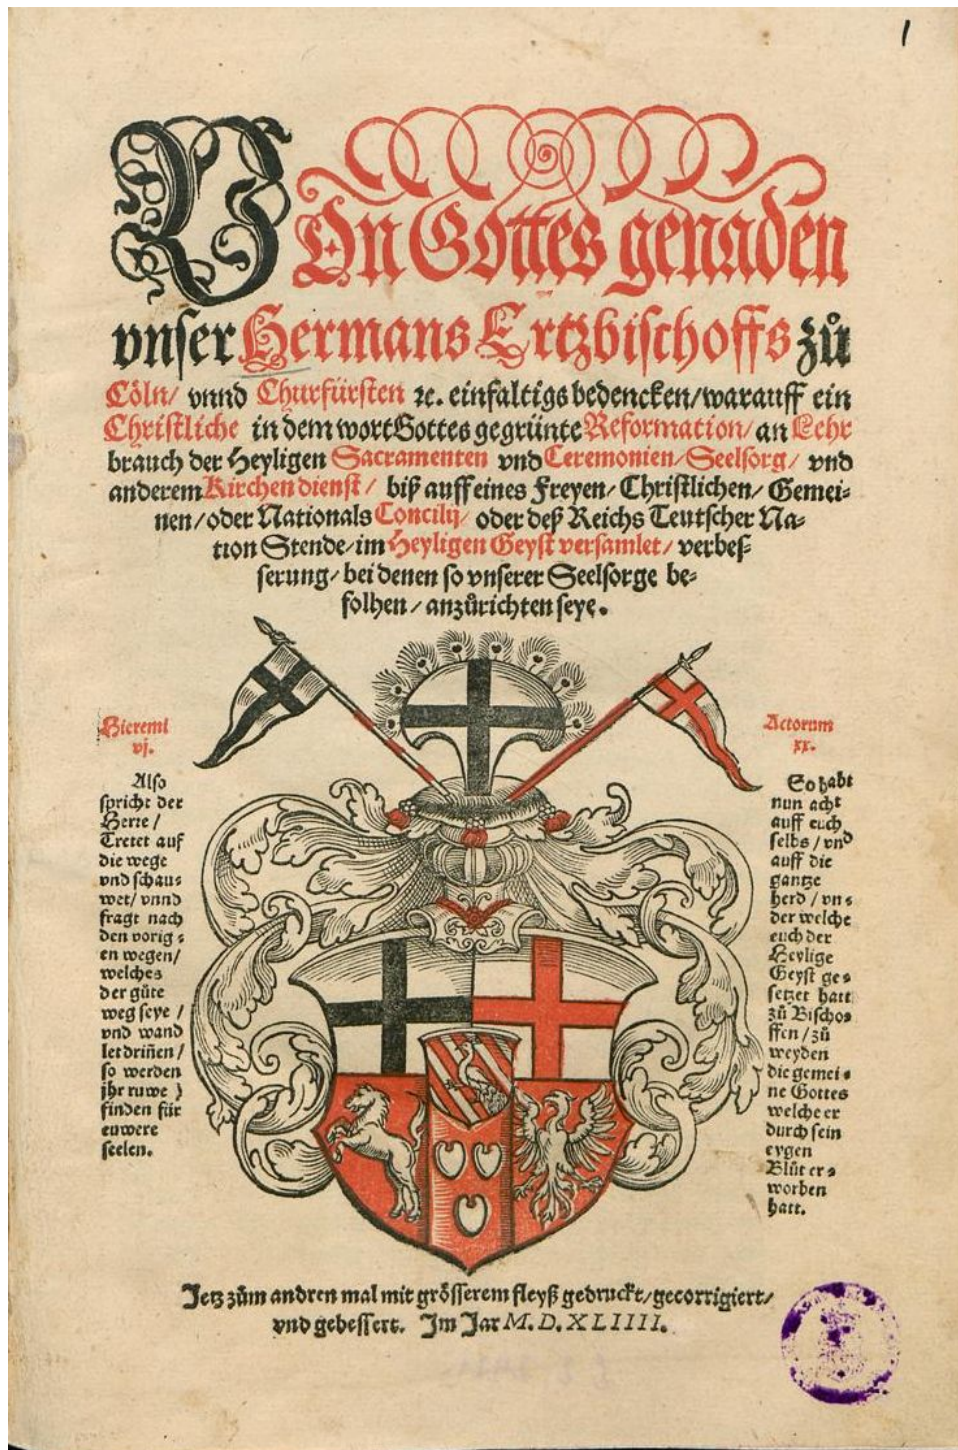 1
VOn Gottes genaden
vnser Hermans Ertzbischoffs zů
Cöln/ vnnd Churfürsten ꝛc. einfaltigs bedencken/warauff ein
Christliche in dem wort Gottes gegrünte Reformation/ an Lehr
brauch der Heyligen Sacramenten vnd Ceremonien/Seelsorg/ vnd
anderem Kirchendienst/ biß auff eines Freyen/Christlichen/ Gemei=
nen/oder Nationals Concilij/ oder deß Reichs Teutscher Na=
tion Stende/im Heyligen Geyst versamlet/ verbes=
serung/ bei denen so vnserer Seelsorge be=
folhen/anzůrichten seye.
Hieremi
vj.
Also
spricht der
Herre/
Tretet auf
die wege
vnd schau=
wet/ vnnd
fragt nach
den vorig=
en wegen/
welches
der gůte
weg seye/
vnd wand
let driñen/
so werden
jhr ruwe
finden für
euwere
seelen.
Actorum
xx.
So habt
nun acht
auff euch
selbs/vnd
auff die
gantze
herd/vn=
der welche
euch der
Heylige
Geyst ge=
setzet hatt
zů Bischo=
ffen/zů
weyden
die gemei=
ne Gottes
welche er
durch sein
eygen
Blůt er=
worben
hatt.
Jetz zům andren mal mit grösserem fleyß gedruckt/gecorrigiert/
vnd gebessert. Im Jar M. D. XLIIII.